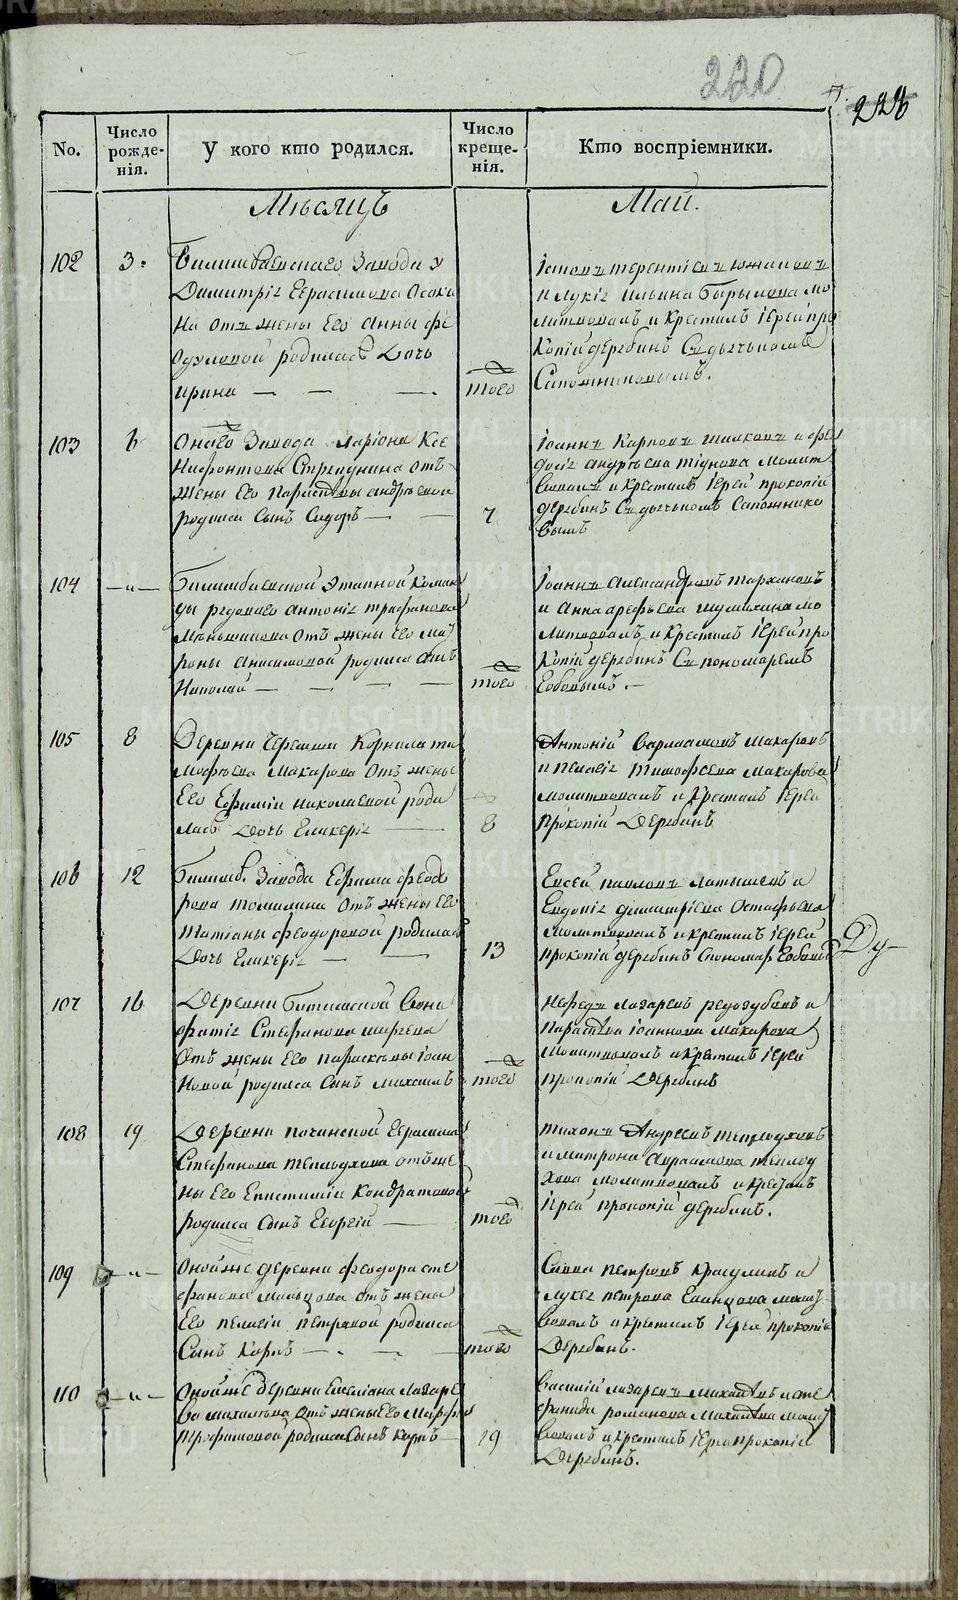 220
228
No.
Число рожде-нія.
У кого кто родился.
Число креще-нія.
Кто воспріемники.
Мѣсяцъ
Май.
102
3
Билимбаевскаго Завода у
Димитріа Герасимова Осоки
на отъ жены Его Анны Фе
одуловой родилась Дочь
Ирина
того
Іаковъ терентіевъ южаковъ
и лукіа ильина Бармлова мо
литвовалъ и крестилъ іерей про
копій дерябинъ Съ дьячькомъ
Сапожниковымъ.
103
6
Онаго Завода Ларіона Ксе
нафонтова отъ
жены Его Параскевы андрѣевой
родился Сынъ Сидоръ
7
Іоаннъ Карповъ и фе
досіа андрѣева молит
вовалъ и крестилъ іерей прокопій
дерябинъ Съ дьячькомъ Сапожнико
вымъ
104
Билимбаевской этапной Коман
ды редоваго антоніа трифанова
Меньшикова отъ жены Его мат
роны анисимовой родился сынъ
Николай
того
Іоаннъ александровъ тархановъ
и Анна арефьева шумихина мо
литвовалъ и крестилъ іерей про
копій дерябинъ Съ пономаремъ
105
8
Деревни Черемши Корнила ти
мофѣева Макарова отъ жены
Его Ефиміи николаевой роди
лась Дочь Гликеріа
8
Антоній варлаамовъ макаровъ
и пелагіа тимофѣева Макарова
молитвовалъ и крестилъ іерей
прокопій Дерябинъ
106
12
Билимб. Завода Ефима Феодо
рова томилина отъ жены Его
татіаны феодоровой родилась
Дочь Гликеріа
13
Евсей павловъ латышевъ и
Евдокіа димитріева Остафьева
молитвовалъ и крестилъ іерей
прокопій дерябинъ
107
16
Деревни Битимской Вони
фатіа Стефанова
отъ жены Его параскевы іоан
новой родился Сынъ михаилъ
того
нефедъ лазаревъ редозубовъ и
параскева іоаннова макарова
молитвовалъ и крестилъ іерей
прокопій Дерябинъ
108
19
Деревни починской Герасима
Стефанова теплоухова отъ же
ны Его Епистиміи Кондратовой
родился Сынъ Георгій
того
тихонъ Андреевъ теплоуховъ
и матрона авраамова теплоу
хова молитвовалъ и крестилъ
іерей прокопій дерябинъ.
109
Онойже деревни феодора сте
фанова мальцова отъ жены
Его пелагіи петровой родился
Сынъ Карпъ
того
Савва петровъ Красулинъ и
лукеа петрова молит
вовалъ и крестилъ іерей прокопій
Дерябинъ.
110
Онойже деревни Емеліана Лазаре
ва михалева отъ жены Его Марфы
трофимовой родился Сынъ Карпъ
19
василій лазаревъ михалевъ и сте
фанида романова михалева молит
вовалъ и крестилъ іерей прокопій
Дерябинъ.